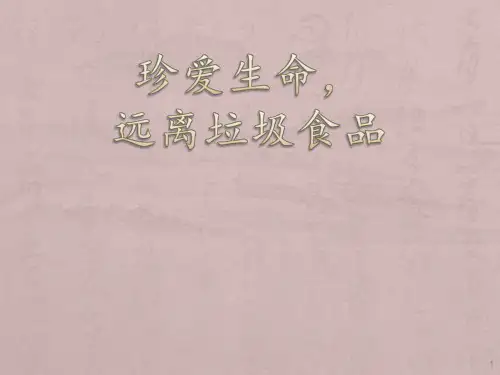 珍爱生命，
远离垃圾食品
1